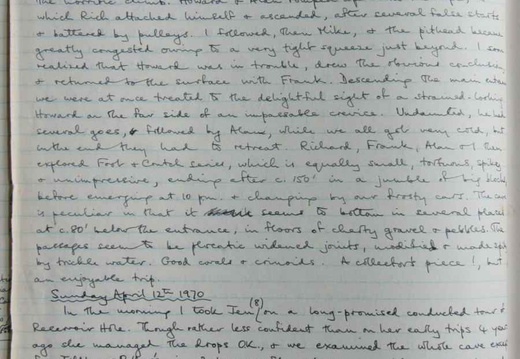 The horrible climb. Howard & Alan
which Rich attached himself & ascended, after several false starts
& battered by pulleys. I followed, then Mike, & the pithead became
greatly congested owing to a very tight squeeze just beyond. I soon
realised that Howard was in trouble, drew the obvious conclusion
& returned to the surface with Frank. Descending the main entrance
we were at once treated to the delightful sight of a strained-looking
Howard on the far side of an impassable crevice. Undaunted, he had
several goes, & followed by Alan, while we all got very cold, but
in the end they had to retreat. Richard, Frank, Alan & I then
explored Fork & Control series, which is equally small, tortuous, spiky
& unimpressive, ending after c. 150' in a jumble of big blocks
before emerging at 10 pm. & changing by our frosty cars. The cave
is peculiar in that it seems to bottom in several places
at c. 80' below the entrance, in floors of cherty gravel & pebbles. The
passages seem to be phreatic widened joints, modified & made spiky
by trickle water. Good corals & crinoids. A collector's piece!, but
an enjoyable trip.
Sunday April 12th 1970
In the morning I took Jen (8) on a long-promised conducted tour of
Reservoir Hole. Though rather less confident than on her early trips 4 years
ago she managed the drops OK., & we examined the whole cave